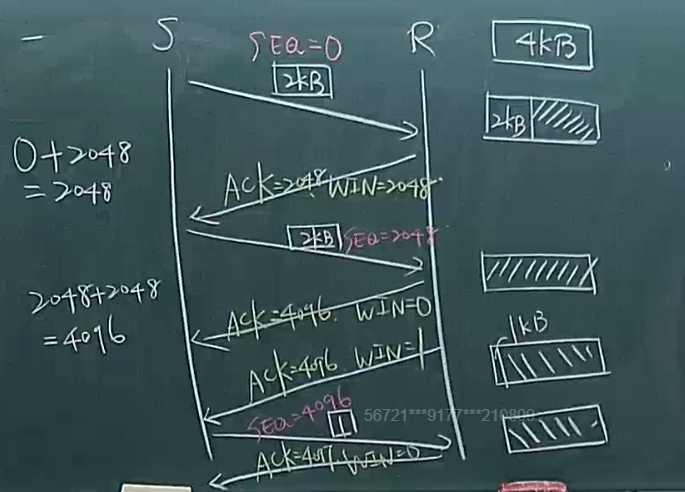 S
R
4kB
SEQ=0
2kB
2kB
0+2048
=2048
ACK=2048. WIN=2048.
2kB
SEQ=2048
2048+2048
=4096
ACK=4096. WIN=0
1kB
ACK=4096. WIN=1
SEQ=4096
1
56721***9177***210809
ACK=4097. WIN=0